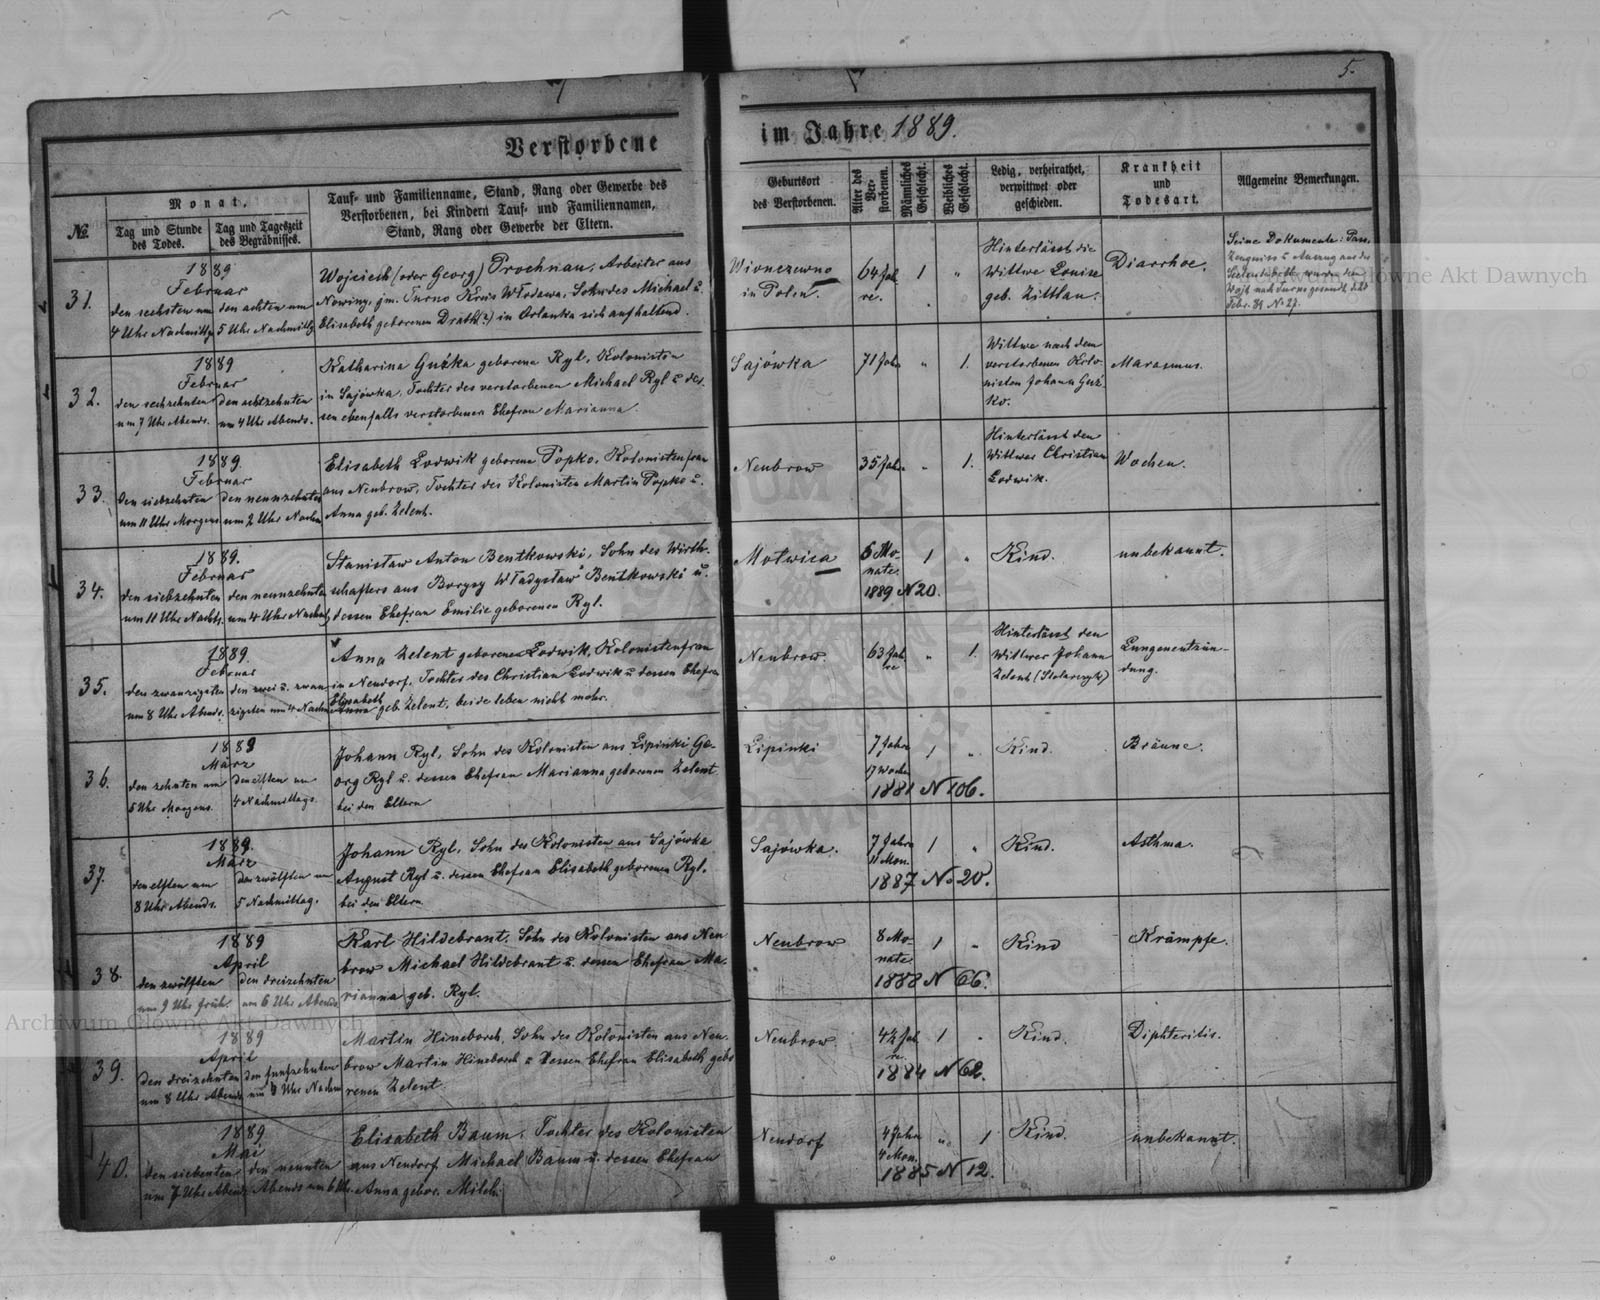 5.
Verstorbene
im Jahre 1889.
№
Monat,
Tag und Stunde des Todes.
Tag und Tageszeit des Begräbnisses.
Tauf- und Familienname, Stand, Rang oder Gewerbe des
Verstorbenen, bei Kindern Tauf- und Familiennamen,
Stand, Rang oder Gewerbe der Eltern.
Geburtsort
des Verstorbenen.
Alter des Verstorbenen.
Männliches Geschlecht.
Weibliches Geschlecht.
Ledig, verheirathet,
verwittwet oder
geschieden.
Krankheit
und
Todesart.
Allgemeine Bemerkungen.
31.
1889
Februar
den sechsten um
4 Uhr Nachmittg
den achten um
5 Uhr Nachmittg
Wojciech (oder Georg) Prochnau, Arbeiter aus
Nowiny, gm. Turno Kreis Włodawa, Sohn des Michael u.
Elisabeth geborenen Drath(?) in Orlanka sich aufhaltend.
in Polen.
64 Jah
re.
1
"
Hinterlässt die
Wittwe Louise
geb. Zittlau.
Diarrhoe.
Seine Dokumente: Pass,
Febr. 89 № 27.
32.
1889
Februar
den sechzehnten
um 7 Uhr Abends.
den achtzehnten
um 4 Uhr Abends.
Katharina Guzka geborene Ryl, Kolonistin
in Sajówka, Tochter des verstorbenen Michael Ryl u des-
sen ebenfalls verstorbenen Ehefrau Marianna.
Sajówka
71 Jahr
"
1.
Wittwe nach dem
verstorbenen Kolo-
nisten Johann Guz-
ko.
Marasmus.
33.
1889.
Februar
den siebzehnten
um 11 Uhr Morgens
den neunzehnten
um 2 Uhr Nachm
Elisabeth Lodwik geborene Popko, Kolonistenfrau
aus Neubrow, Tochter des Kolonisten Martin Popko u.
Anna geb. Zelent.
Neubrow
35 Jahr
"
1.
Hinterlässt den
Wittwer Christian
Lodwik.
Wochen.
34.
1889.
Februar
den siebzehnten
um 11 Uhr Nachts.
den neunzehnten
um 4 Uhr Nachm
Stanisław Anton Bentkowski, Sohn des Wirth-
schafters aus Borysy Władysław Bentkowski u.
dessen Ehefrau Emilie geborenen Ryl.
Motwica
6 Mo-
nate.
1889 N 20.
1
"
Kind.
unbekannt.
35.
1889.
Februar
den zwanzigsten
um 8 Uhr Abends.
den zwei u. zwan-
zigsten um 4 Nachm
Anna Zelent geborene Lodwik, Kolonistenfrau
in Neudorf, Tochter des Christian Lodwik u dessen Ehefrau
Elisabeth
Anna geb. Zelent, beide leben nicht mehr.
Neubrow.
63 Jah
re
"
1.
Hinterlässt den
Wittwer Johann
Zelent (Stolarczyk)
Lungenentzün-
dung.
36.
1889
März
den zehnten um
5 Uhr Morgens.
den elften um
4 Nachmittags.
Johann Ryl, Sohn des Kolonisten aus Lipinki Ge-
org Ryl u. dessen Ehefrau Marianna geborenen Zelent
bei den Eltern
Lipinki
7 Jahre
17 Wochen
1881 N 106.
1
"
Kind.
Bräune.
37.
1889.
März
den elften um
8 Uhr Abends.
den zwölften um
5 Nachmittag.
Johann Ryl, Sohn des Kolonisten aus Sajówka
August Ryl u. dessen Ehefrau Elisabeth geborenen Ryl.
bei den Eltern
Sajówka.
7 Jahre
11 Mon.
1887 No 20.
1
"
Kind.
Asthma.
38.
1889
April
den zwölften
um 9 Uhr früh.
den dreizehnten
um 6 Uhr Abends
Karl Hildebrant, Sohn des Kolonisten aus Neu
brow Michael Hildebrant u. dessen Ehefrau Ma-
rianna geb. Ryl.
Neubrow
8 Mo-
nate
1888 N 66.
1
"
Kind
Krämpfe.
39.
1889
April
den dreizehnten
um 8 Uhr Abends
den funfzehnten
Uhr Nachm
Martin Hineborch, Sohn des Kolonisten aus Neu-
brow Martin Hineborch u dessen Ehefrau Elisabeth gebo
renen Zelent.
Neubrow
4½ Jah
re.
1884 N 62.
1
"
Kind.
Diphteritis.
40.
1889
Mai
den siebenten
um 7 Uhr Abends
den neunten
Abends um 6 Uhr.
Elisabeth Baum, Tochter des Kolonisten
aus Neudorf Michael Baum u. dessen Ehefrau
Anna gebor. Milch.
Neudorf
4 Jahre
4 Mon.
1885 N 12.
"
1
Kind.
unbekannt.
Archiwum Główne Akt Dawnych
Archiwum Główne Akt Dawnych